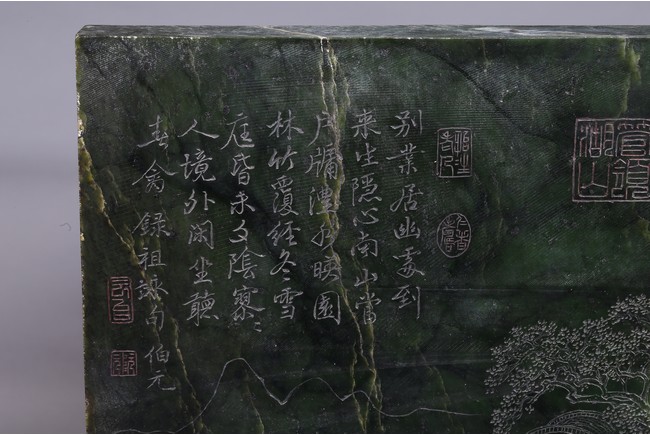 管領湖山
别業居幽處到
来生隱心南山當
户牖澧水映園
林竹覆經冬雪
庭昏未夕陰寥〻
人境外閑坐聽
春禽錄祖詠句伯元